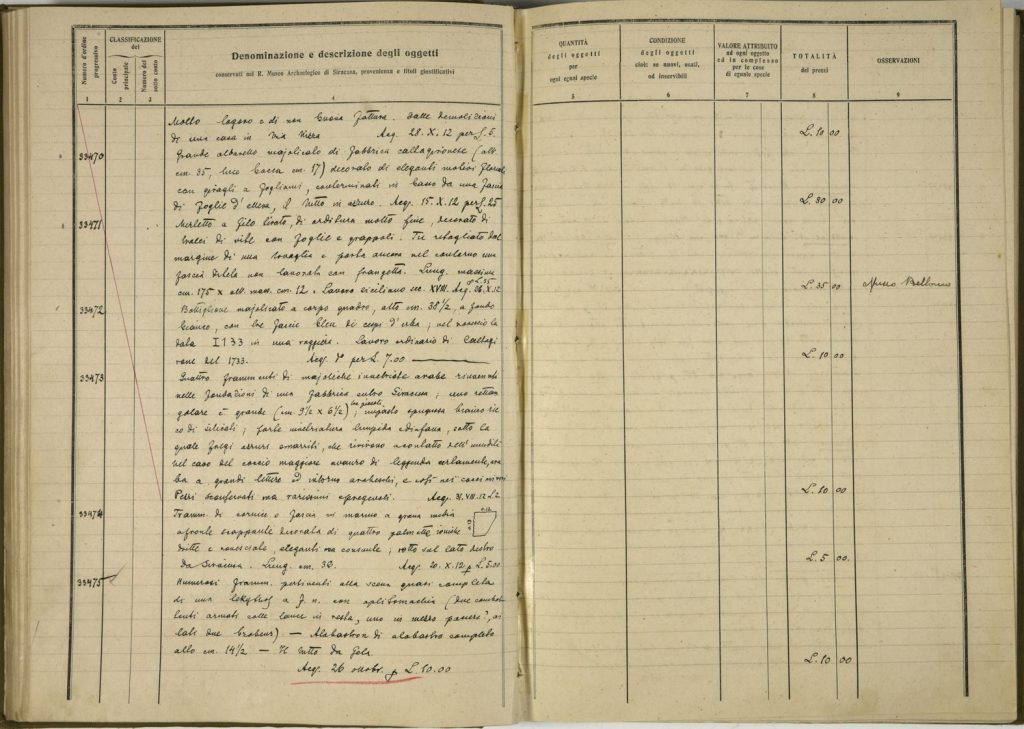 Numero d'ordine progressivo
CLASSIFICAZIONE del
Conto principale
Numero del sotto conto
Denominazione e descrizione degli oggetti
conservati nel R. Museo Archeologico di Siracusa, provenienza e titoli giustificativi
QUANTITÀ degli oggetti per ogni eguni specie
CONDIZIONE degli oggetti cioè: se nuovi, usati, od inservibili
VALORE ATTRIBUITO ad ogni oggetto ed in complesso per le cose di eguale specie
TOTALITÀ dei prezzi
OSSERVAZIONI
1 2 3 4 5 6 7 8 9
Molto logoro e di non buona fattura. Dalle demolizioni
di una casa in Via Acq. 28. X. 12 per L. 5. L. 10 00
33470 Grande albarello majolicato di fabbrica caltagironese (alt.
cm. 35, luce bocca cm. 17) decorato di eleganti motivi floreali
con giragli a fogliami, conterminati in basso da una fascia
di foglie d' , il tutto in azzurro. Acq. 15. X. 12 per L. 25 L. 30 00
33471 Merletto a filo tirato, di orditura molto fine, decorato di
tralci di vite con foglie e grappoli. Fu ritagliato dal
margine di una tovaglia e porta ancora nel contorno una
fascia di tela non lavorata con frangetta. Lung. massima
cm. 175 x alt. mass. cm. 12. Lavoro siciliano sec. XVIII. Acq. 26. X. 12 p. L. 35 L. 35 00 Museo Bellomo
33472 Bottiglione majolicato a corpo quadro, alto cm. 38 1/2, a fondo
bianco, con tre fascie bleu di ; nel rovescio la
data I733 in una raggiera. Lavoro ordinario di Caltagi
rone del 1733. Acq. per L. 7.00 L. 10 00
33473 Quattro frammenti di majoliche invetriate arabe rinvenute
nelle fondazioni di una fabbrica entro Siracusa; uno rettan
golare è grande (cm. 9 1/2 x 6 1/2), tre piccoli; impasto spugnoso bianco ric
co di silicati; forte invetriatura limpida e diafana, sotto la
quale fregi azzurri smarriti, che rivivono a contatto dell'umidità
nel caso del coccio maggiore avanzo di leggenda certamente ara
ba a grandi lettere ed intorno arabeschi, e così nei cocci minori
Pezzi sconservati ma rarissimi e pregevoli. Acq. 31. VIII. 12 L. 2 L. 10 00
33474 Framm. di cornice o fascia in marmo a grana media
a fronte strappante decorata di quattro palmette ioniche
dritte e rovesciate, eleganti ma consunte; rotto sul lato destro
Da Siracusa. Lung. cm. 30. Acq. 20. X. 12 p. L. 5.00 L. 5 00.
33475 Numerosi framm. pertinenti alla scena quasi completa
di una lekythos a f. n. con oplitomachia (due combat
tenti armati colle lance in resta, uno in mezzo , ai
lati due brabeus). — Alabastron di alabastro completo
alto cm. 14 1/2 — Il tutto da Gela
Acq. 26 ottobr. p. L. 10.00 L. 10 00